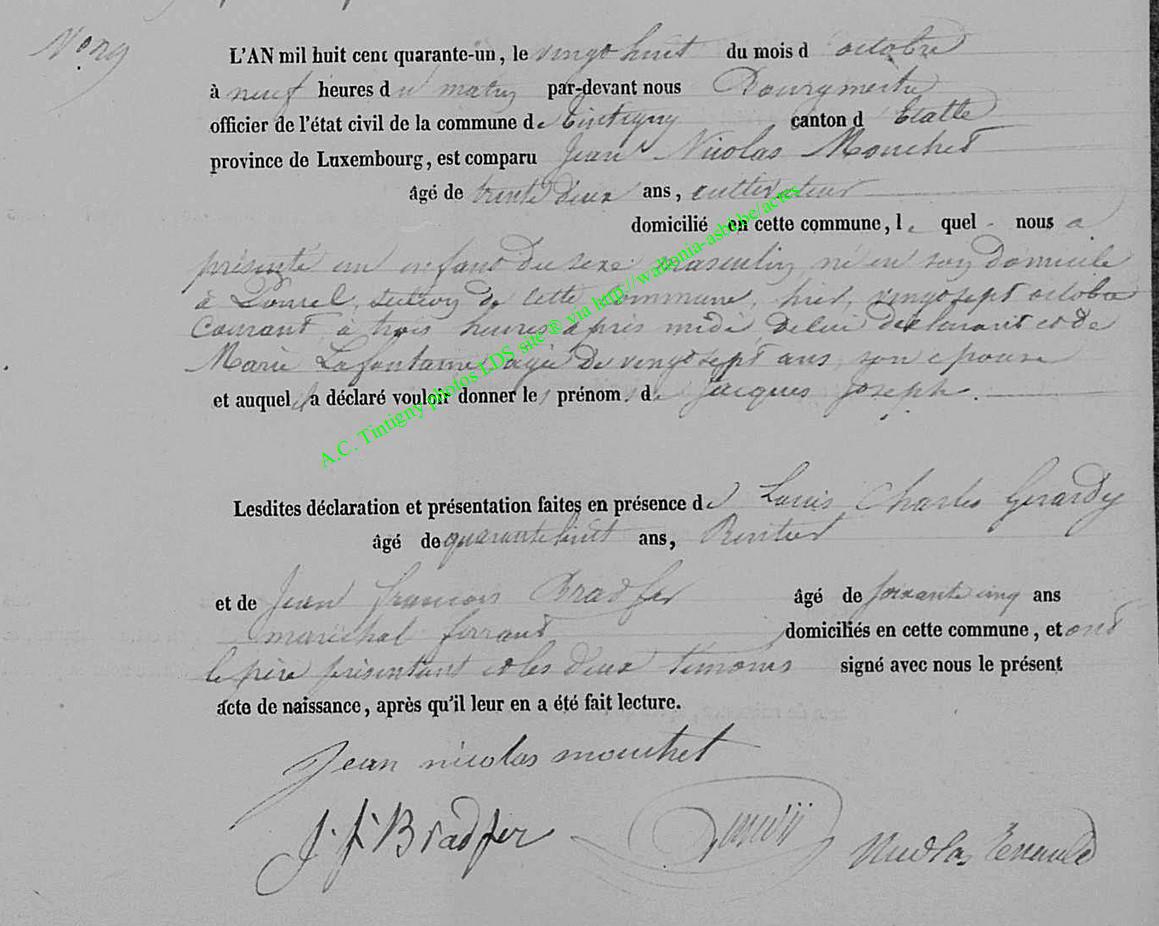 L'AN mil huit cent quarante-un, le vingt huit du mois d octobre
à neuf heures du matin par-devant nous Bourgmestre
officier de l'état civil de la commune de Tintigny canton d Etalle
province de Luxembourg, est comparu Jean Nicolas Mouchet
âgé de trente deux ans, cultivateur
domicilié en cette commune, le quel nous a
présenté un enfant du sexe masculin, né en son domicile
à section de cette commune, hier, vingt sept octobre
Courant à trois heures après midi de lui déclarant et de
Marie Lafontaine, agée de vingt sept ans, son epouse
et auquel il a déclaré vouloir donner les prénom. de Jacques Joseph.
Lesdites déclaration et présentation faites en présence de Louis Charles Gerardy
âgé de quarante huit ans, Rentier
et de Jean françois Bradfer âgé de soixante cinq ans
maréchal ferrant domiciliés en cette commune, et ont
le père présentant et les deux témoins signé avec nous le présent
acte de naissance, après qu'il leur en a été fait lecture.
Jean nicolas mouchet
J. f. Bradfer
A.C. Tintigny photos LDS site ® via http://wallonia-asbl.be/actes